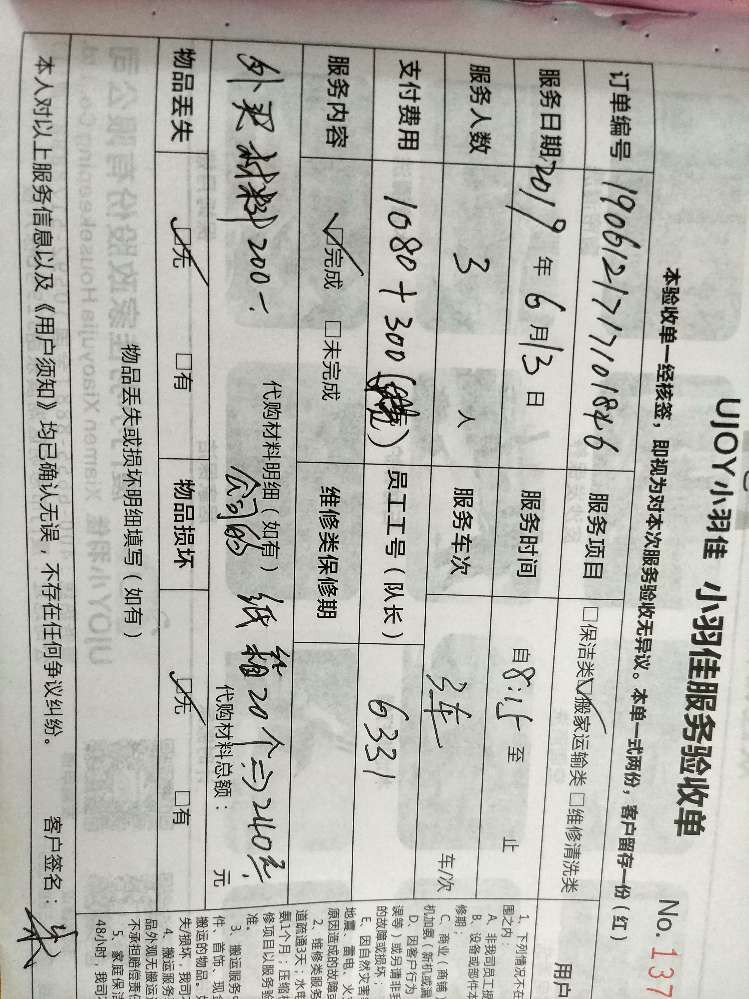 UJOY小羽佳 小羽佳服务验收单
No. 137
本验收单一经核签，即视为对本次服务验收无异议。本单一式两份，客户留存一份（红）
订单编号 190612171701846 服务项目 □保洁类 ☑搬家运输类 □维修清洗类
服务日期 2019 年 6 月 13 日 服务时间 自 8:15 至 止
服务人数 3 人 服务车次 3车 车/次
支付费用 1080+300 员工工号（队长） 6331
服务内容 ☑完成 □未完成 维修类保修期
代购材料明细（如有）
外买材料200－ 公司的 纸箱20个⇒240元
代购材料总额： 元
物品丢失 ☑无 □有 物品损坏 ☑无 □有
物品丢失或损坏明细填写（如有）
本人对以上服务信息以及《用户须知》均已确认无误，不存在任何争议纠纷。 客户签名：
用户
1、下列情况不在
围之内：
A、非我司员工
B、设备或部件本
修期；
C、商业（商铺
机加氨（新机或漏
误等）或另请非我
的故障或损坏；
D、因客户行为
E、因自然灾害
地震、雷电、火
原因造成的故障或
2、维修类服务
道疏通3天；水电
氨1个月；压缩机
修项目以服务验
准。
3、搬运服务中
件、首饰、现金
搬运的物品。如
失/损坏，我司不
4、搬运服务
品外观无搬运
不承担赔偿责任
5、家庭保洁
48小时，我司不